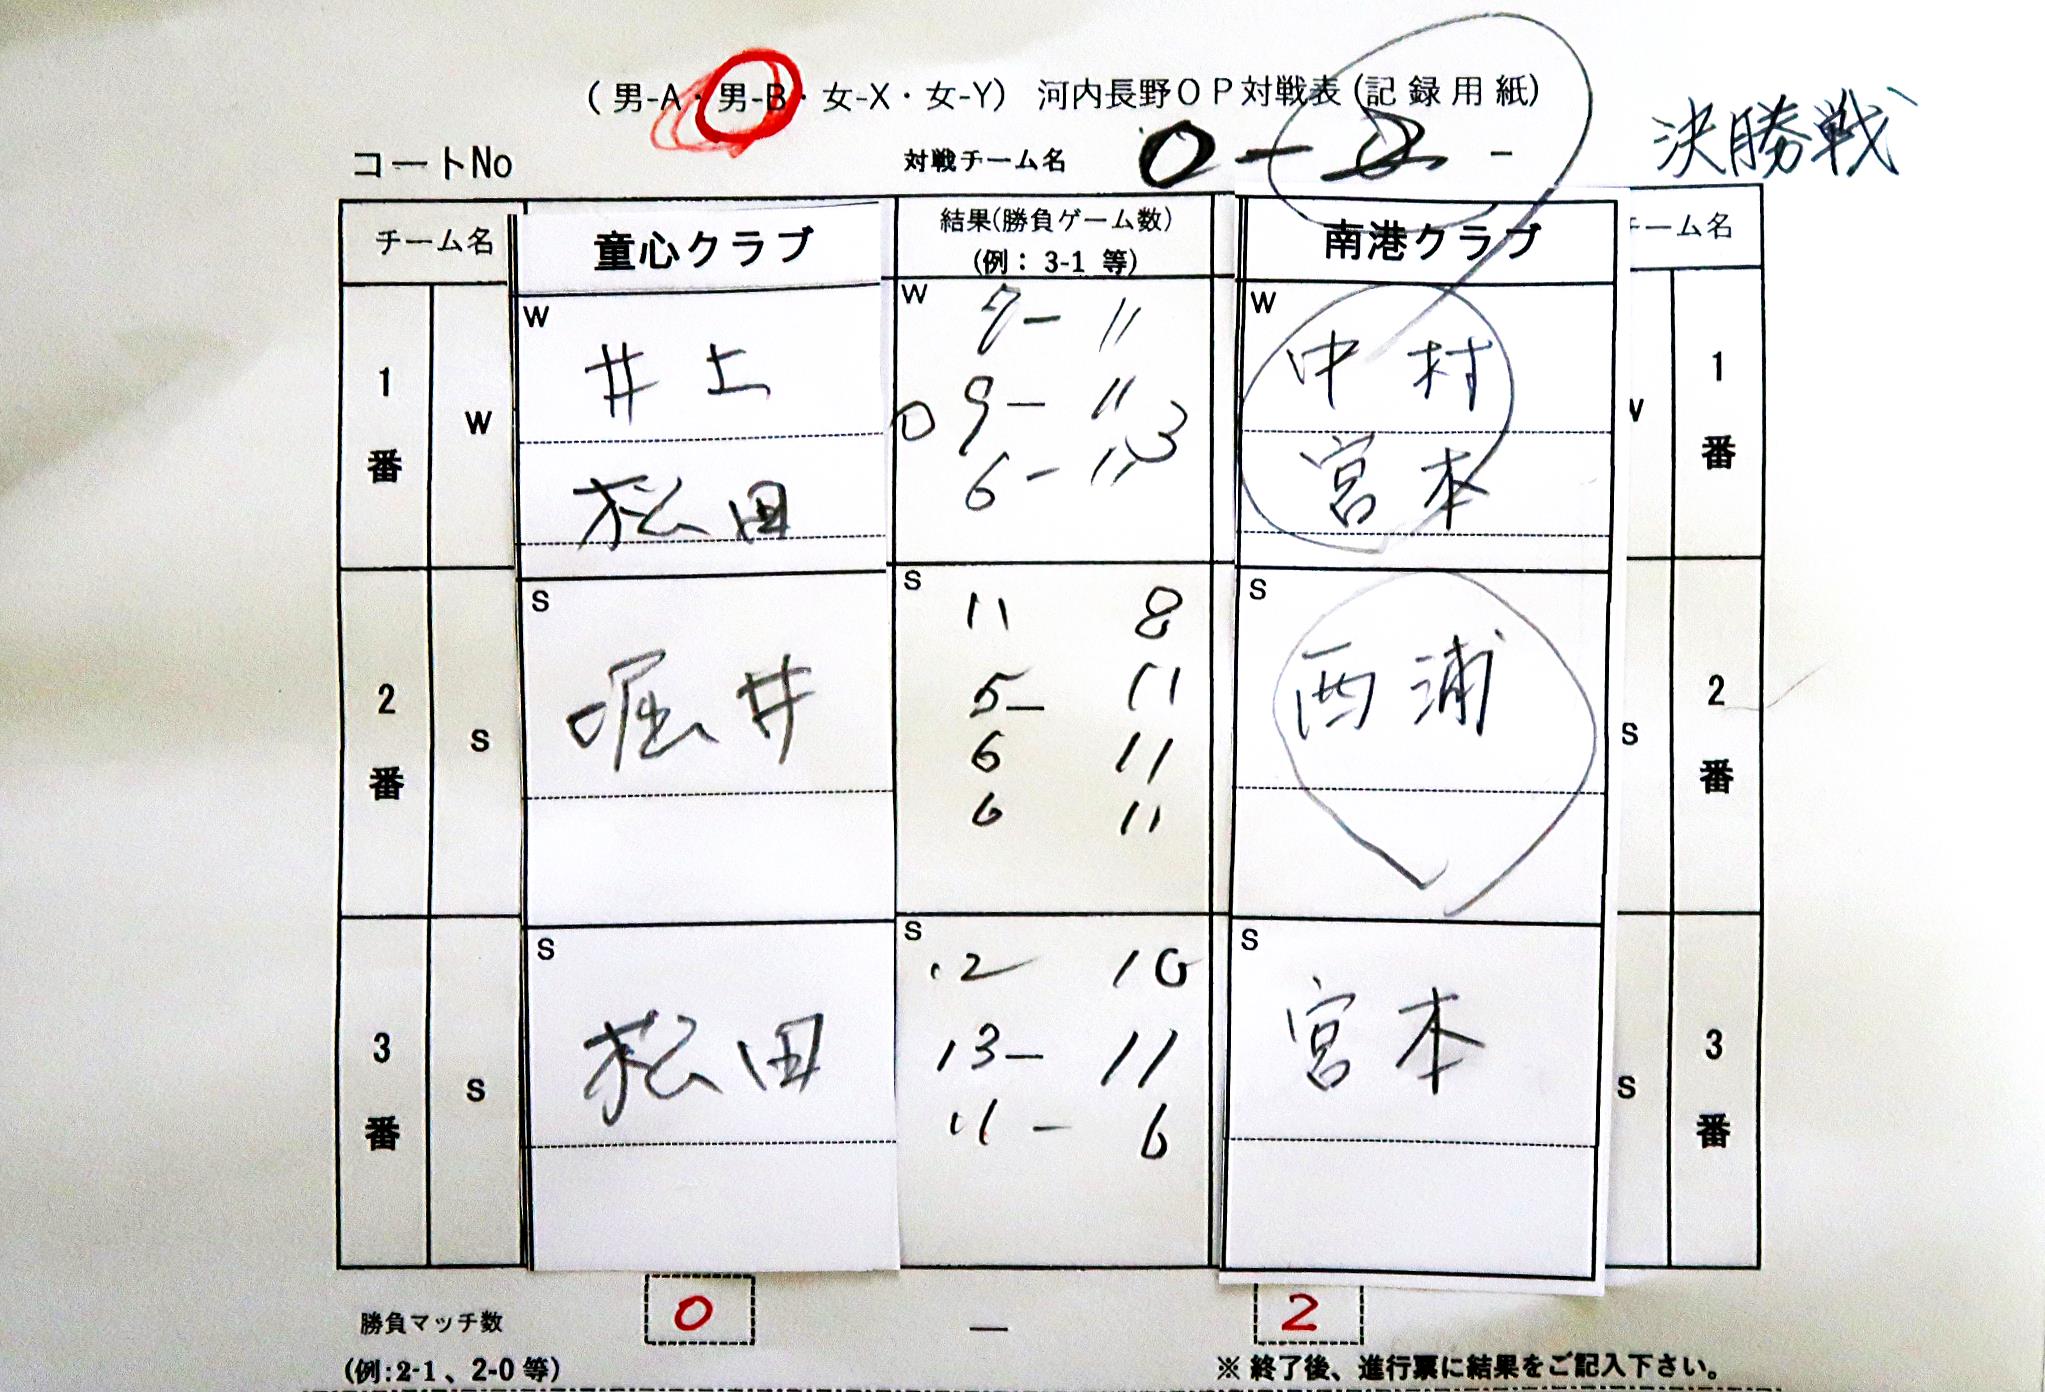 (男-A・男-B・女-X・女-Y) 河内長野OP対戦表(記録用紙)
決勝戦
コートNo 対戦チーム名 0-2 -
チーム名 童心クラブ 結果(勝負ゲーム数) 南港クラブ チーム名
(例: 3-1 等)
1番 W W 井上 W 7-11 W 中村 W 1番
0 9-11 3
松田 6-11 宮本
2番 S S 堀井 S 11 8 S 西浦 S 2番
5-11
6 11
6 11
3番 S S 松田 S 12-10 S 宮本 S 3番
13-11
11-6
勝負マッチ数 0 - 2
(例:2-1、2-0等) ※終了後、進行票に結果をご記入下さい。